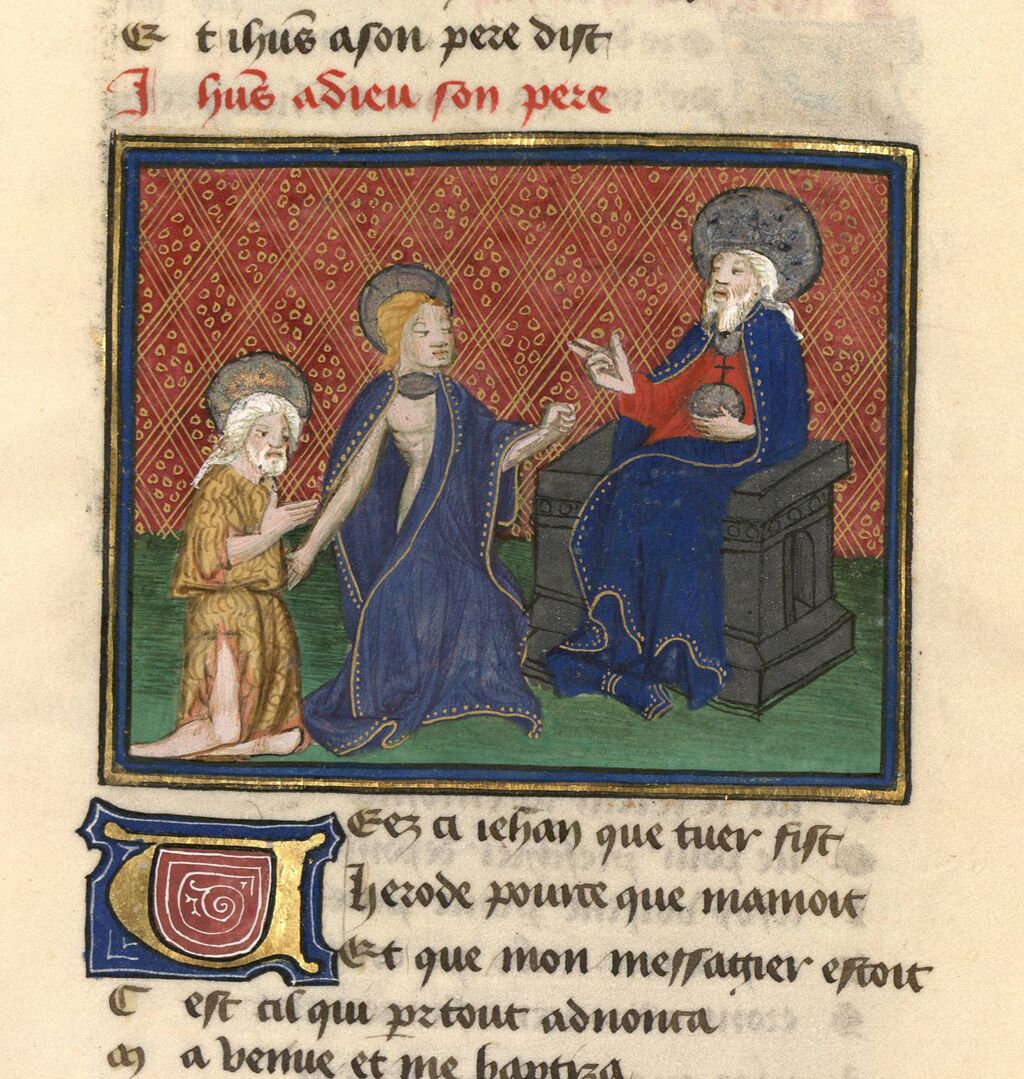 Et ihūs a son pere dist
Ihūs a dieu son pere
Veez ci iehan que tuer fist
Herode pource que mamoit
Et que mon messagier estoit
C est cil qui partout adnonca
M a venue et me baptiza